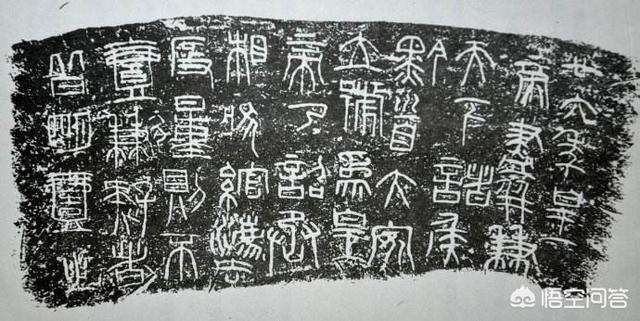 廿六年皇
帝盡并兼
天下諸侯
黔首大安
立號為皇
帝乃詔丞
相狀綰灋
度量則不
壹歉疑者
皆明壹之
悟空问答